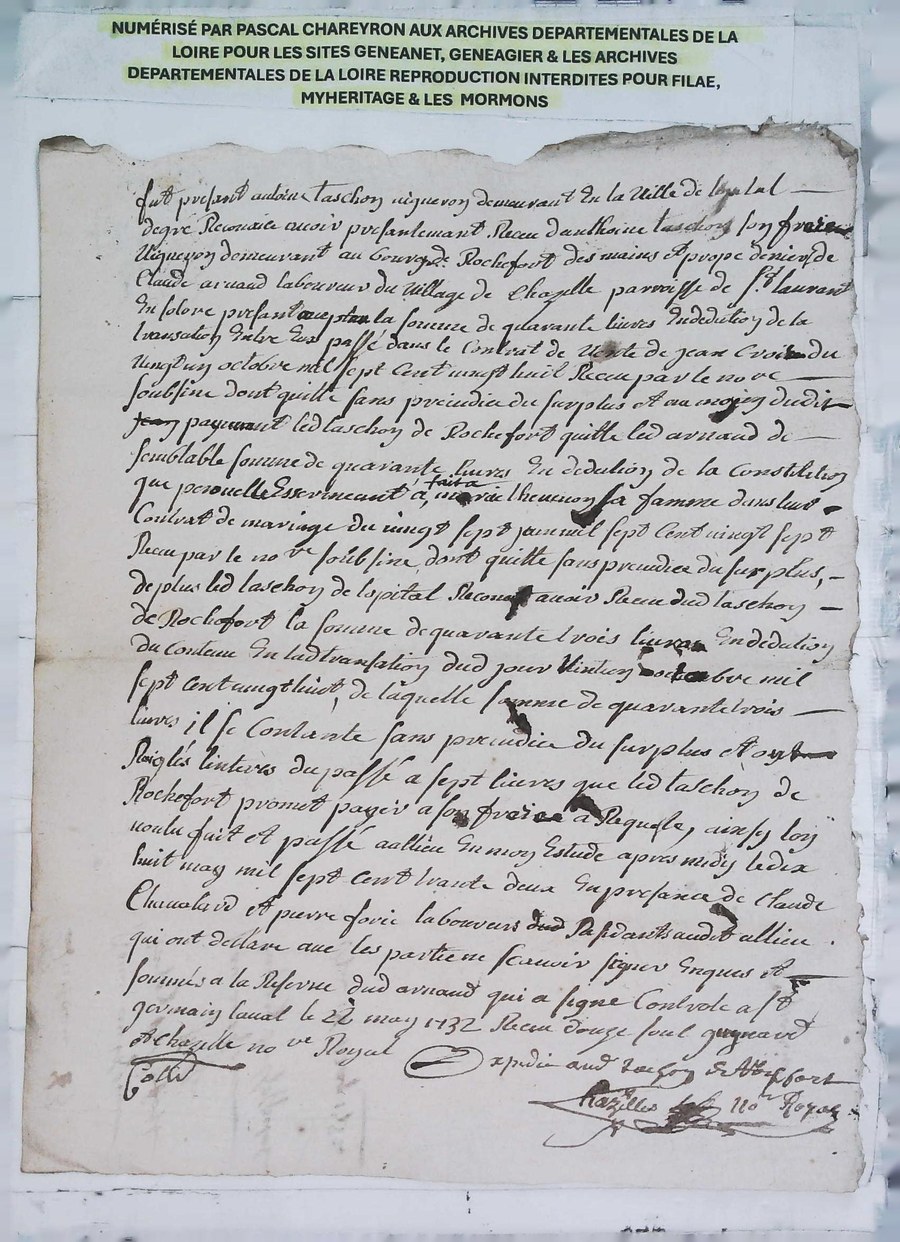 NUMÉRISÉ PAR PASCAL CHAREYRON AUX ARCHIVES DEPARTEMENTALES DE LA
LOIRE POUR LES SITES GENEANET, GENEAGIER & LES ARCHIVES
DEPARTEMENTALES DE LA LOIRE REPRODUCTION INTERDITES POUR FILAE,
MYHERITAGE & LES MORMONS
fut présant antoine taschon vigneron demeurant En la Ville de
degré Reconait auoir presantemant Receu danthoine taschon son freire
Vigneron demeurant au bourg de Rochefort des mains et prope deniers de
Claude arnaud laboureur du Village de Chazelle parroisse de St laurant
En solore présant la somme de quarante liures En dedution de la
transation Entre Eux passé dans le Contrat de Vente de jean Croi du
Vingt un octobre mil sept Cent vingt huit Receu par le no re
soubsine dont quitte sans preiudice du surplus et au moyen dudit
payemant led taschon de Rochefort quitte led arnaud de
semblable somme de quarante liures En dedution de la Constitution
que a, faita marie theuenon sa famme dans leur
Contrat de mariage du vingt sept mil sept Cent vingt sept
Receu par le no re soubsine, dont quitte sans preiudice du surplus,
de plus led taschon de lopital Reconait auoir Receu dud taschon
de Rochefort la somme de quarante trois liures En dedution
du Contenu En lad transation dud jour Vintun octobre mil
sept Cent vingt huit, de laquelle somme de quarante trois
liures il se Contante sans preiudice du surplus et ont
Reiglés linteres du passé a sept liures que led taschon de
Rochefort promet payer a son freire a Requeste, ainsy lon
voulu fait et passé a allieu En mon Estude apres midy le dix
huit may mil sept Cent trante deux En presance de Claude
et pierre laboureurs Residants audit allieu
qui ont declaré auec les partie ne scauoir signer Enquis et
sommés a la Reserue dud arnaud qui a signé Controle a St
germain laual le 22 may 1732 Receu douze soul guynard
et chazelle no re Royal
Expedié aud taschon de Rochefort
Chazelles no re Royal